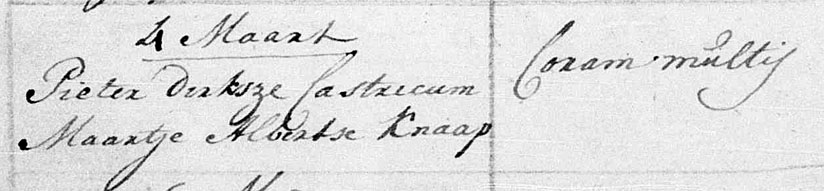 4 Maart
Pieter Dirksze Castricum
Maartje Albertse Knaap
Coram multis